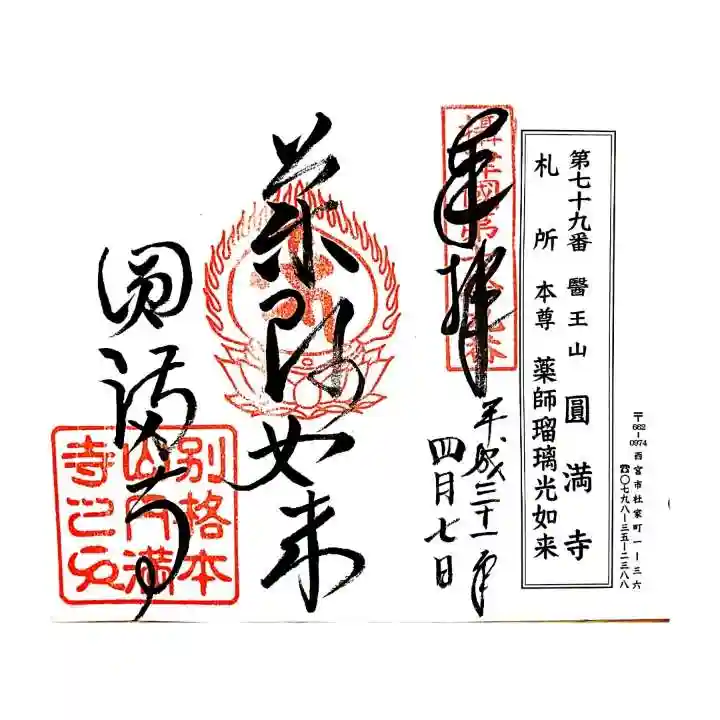 〒662-0974 西宮市社家町一ー三六
☎〇七九八ー三五ー二三八八
第七十九番 醫王山 圓満寺
札所 本尊 薬師瑠璃光如来
奉拝
平成三十一年
四月七日
薬師如来
圓満寺
別格本
山円満
寺之印